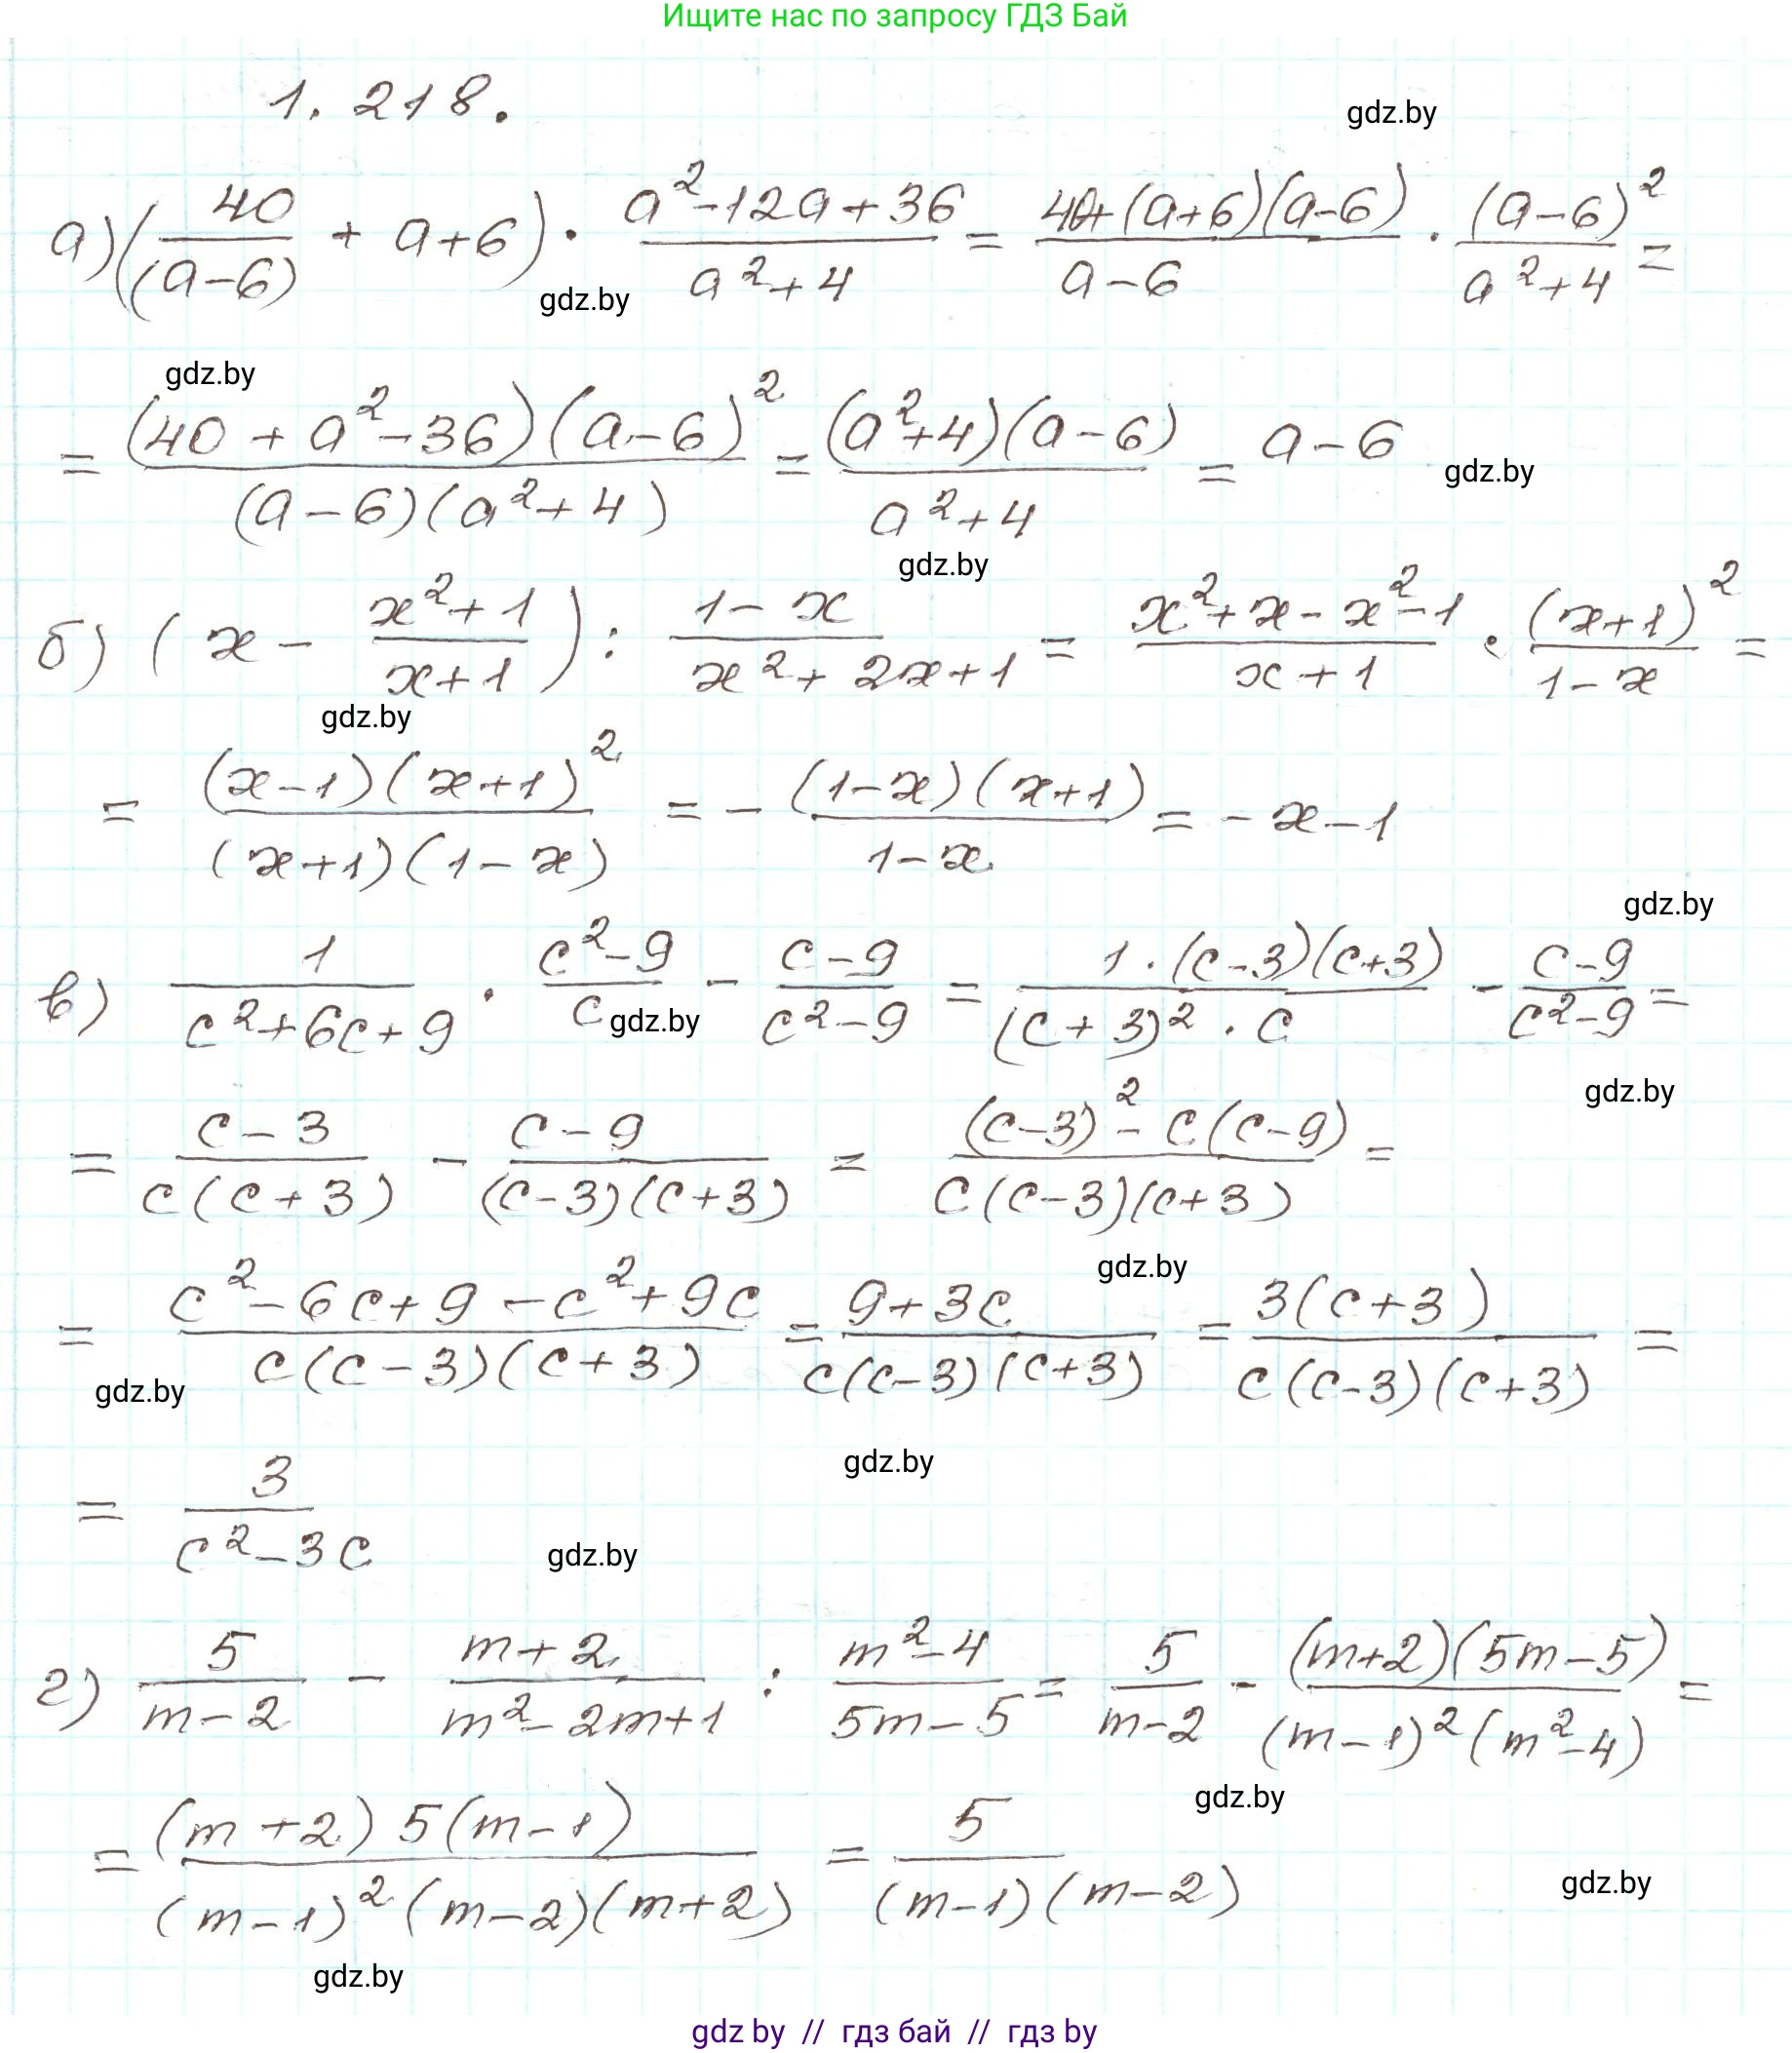 Ищите нас по запросу ГДЗ Бай
1. 218.
gdz.by
а) (40/(a-6) + a+6) · (a²-12a+36)/(a²+4) = (40+(a+6)(a-6))/(a-6) · (a-6)²/(a²+4) =
gdz.by
gdz.by
= (40+a²-36)(a-6)²/((a-6)(a²+4)) = (a²+4)(a-6)/(a²+4) = a-6
gdz.by
gdz.by
б) (x - (x²+1)/(x+1)) : (1-x)/(x²+2x+1) = (x²+x-x²-1)/(x+1) · (x+1)²/(1-x) =
gdz.by
= (x-1)(x+1)²/((x+1)(1-x)) = - (1-x)(x+1)/(1-x) = -x-1
gdz.by
в) 1/(c²+6c+9) · (c²-9)/c - (c-9)/(c²-9) = 1·(c-3)(c+3)/((c+3)²·c) - (c-9)/(c²-9) =
gdz.by
gdz.by
= (c-3)/(c(c+3)) - (c-9)/((c-3)(c+3)) = ((c-3)²-c(c-9))/(c(c-3)(c+3)) =
gdz.by
= (c²-6c+9-c²+9c)/(c(c-3)(c+3)) = (9+3c)/(c(c-3)(c+3)) = 3(c+3)/(c(c-3)(c+3)) =
gdz.by
gdz.by
= 3/(c²-3c)
gdz.by
г) 5/(m-2) - (m+2)/(m²-2m+1) : (m²-4)/(5m-5) = 5/(m-2) - (m+2)(5m-5)/((m-1)²(m²-4)) =
gdz.by
= (m+2)5(m-1)/((m-1)²(m-2)(m+2)) = 5/((m-1)(m-2))
gdz.by
gdz.by
gdz by // гдз бай // гдз by